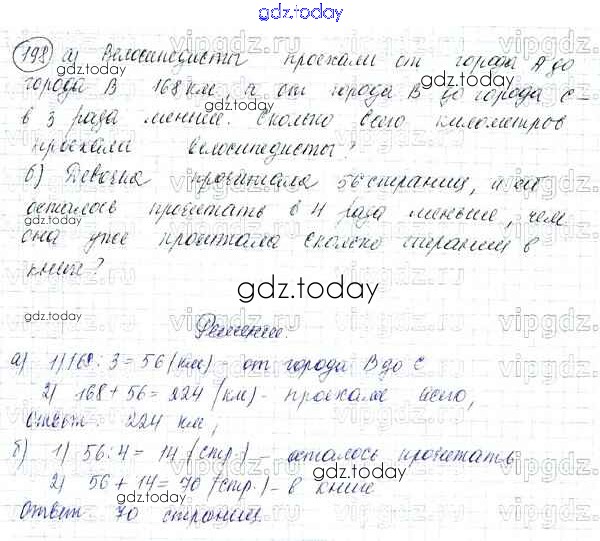 gdz.today
198 а) Велосипедисты проехали от города А до
города В 168 км, а от города В до города С –
в 3 раза меньше. Сколько всего километров
проехали велосипедисты?
б) Девочка прочитала 56 страниц, и ей
осталось прочитать в 4 раза меньше, чем
она уже прочитала. Сколько страниц в
книге?
gdz.today
Решение.
а) 1) 168 : 3 = 56 (км) – от города В до С
2) 168 + 56 = 224 (км) – проехали всего,
Ответ: 224 км,
б) 1) 56 : 4 = 14 (стр.) – осталось прочитать
2) 56 + 14 = 70 (стр.) – в книге
Ответ: 70 страниц.